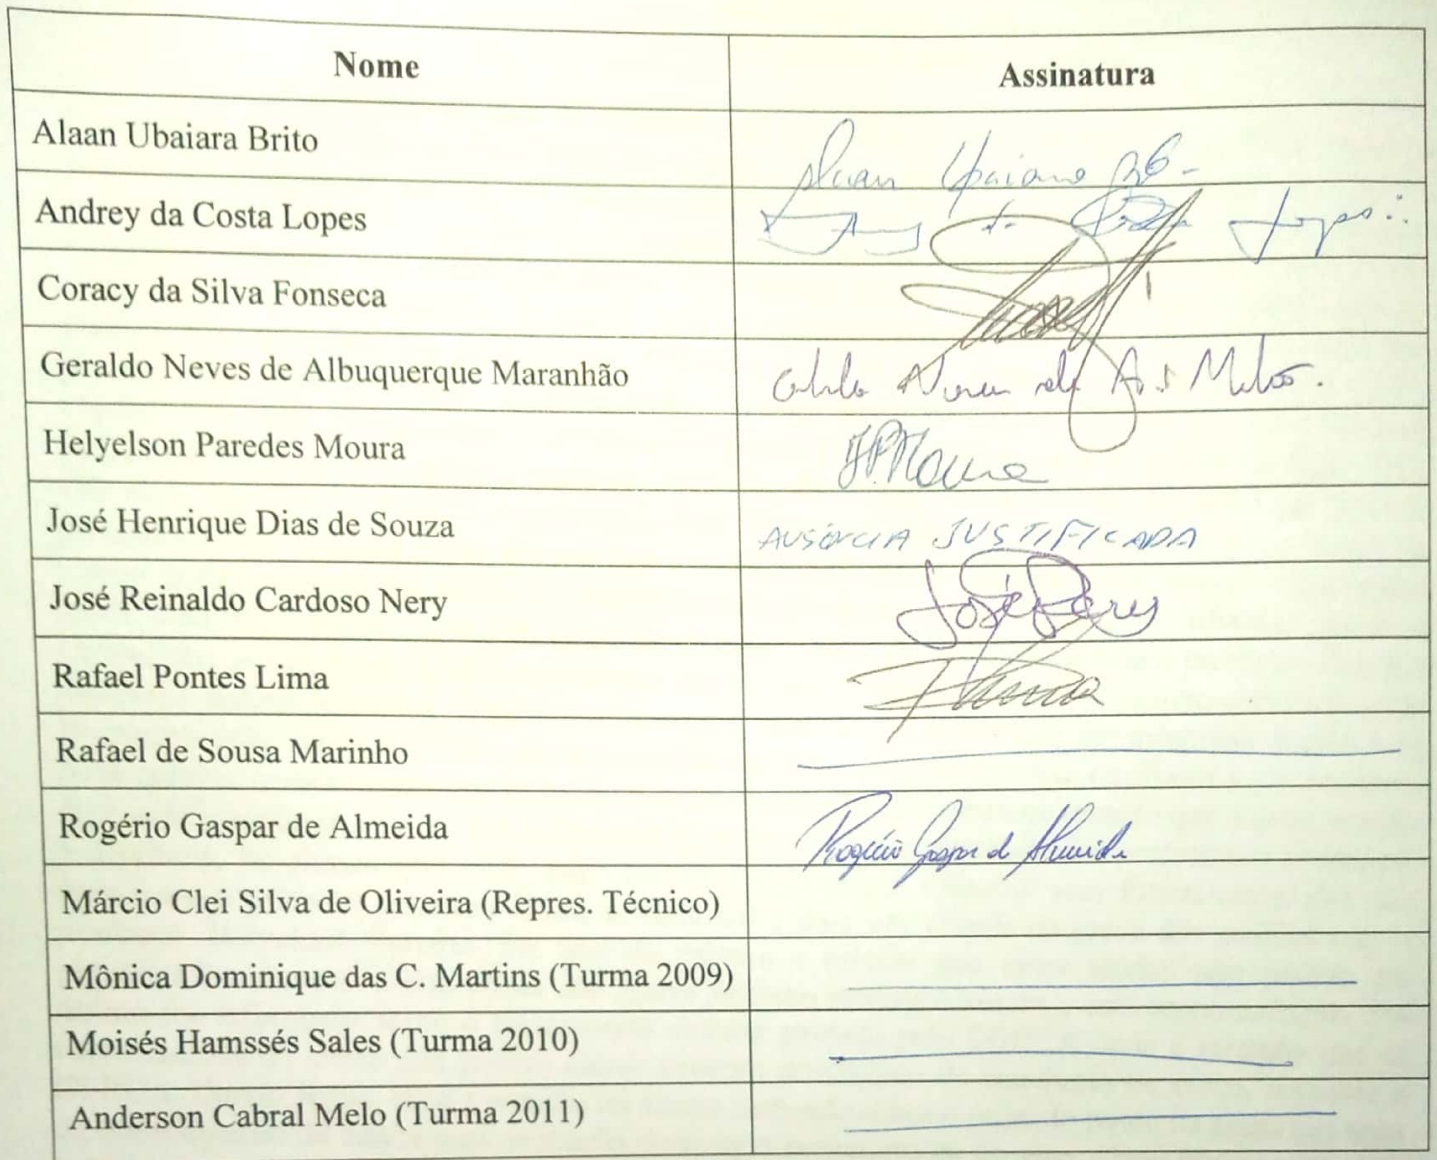 Nome Assinatura
Alaan Ubaiara Brito Alaan Ubaiara
Andrey da Costa Lopes Lopes
Coracy da Silva Fonseca
Geraldo Neves de Albuquerque Maranhão
Helyelson Paredes Moura H.P.Moura
José Henrique Dias de Souza AUSÊNCIA JUSTIFICADA
José Reinaldo Cardoso Nery José Nery
Rafael Pontes Lima
Rafael de Sousa Marinho
Rogério Gaspar de Almeida Rogério Gaspar de Almeida
Márcio Clei Silva de Oliveira (Repres. Técnico)
Mônica Dominique das C. Martins (Turma 2009)
Moisés Hamssés Sales (Turma 2010)
Anderson Cabral Melo (Turma 2011)